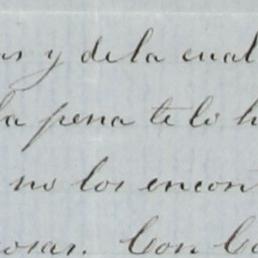 as y de la cual
la pena te lo h
no los encon
osas. Con Co